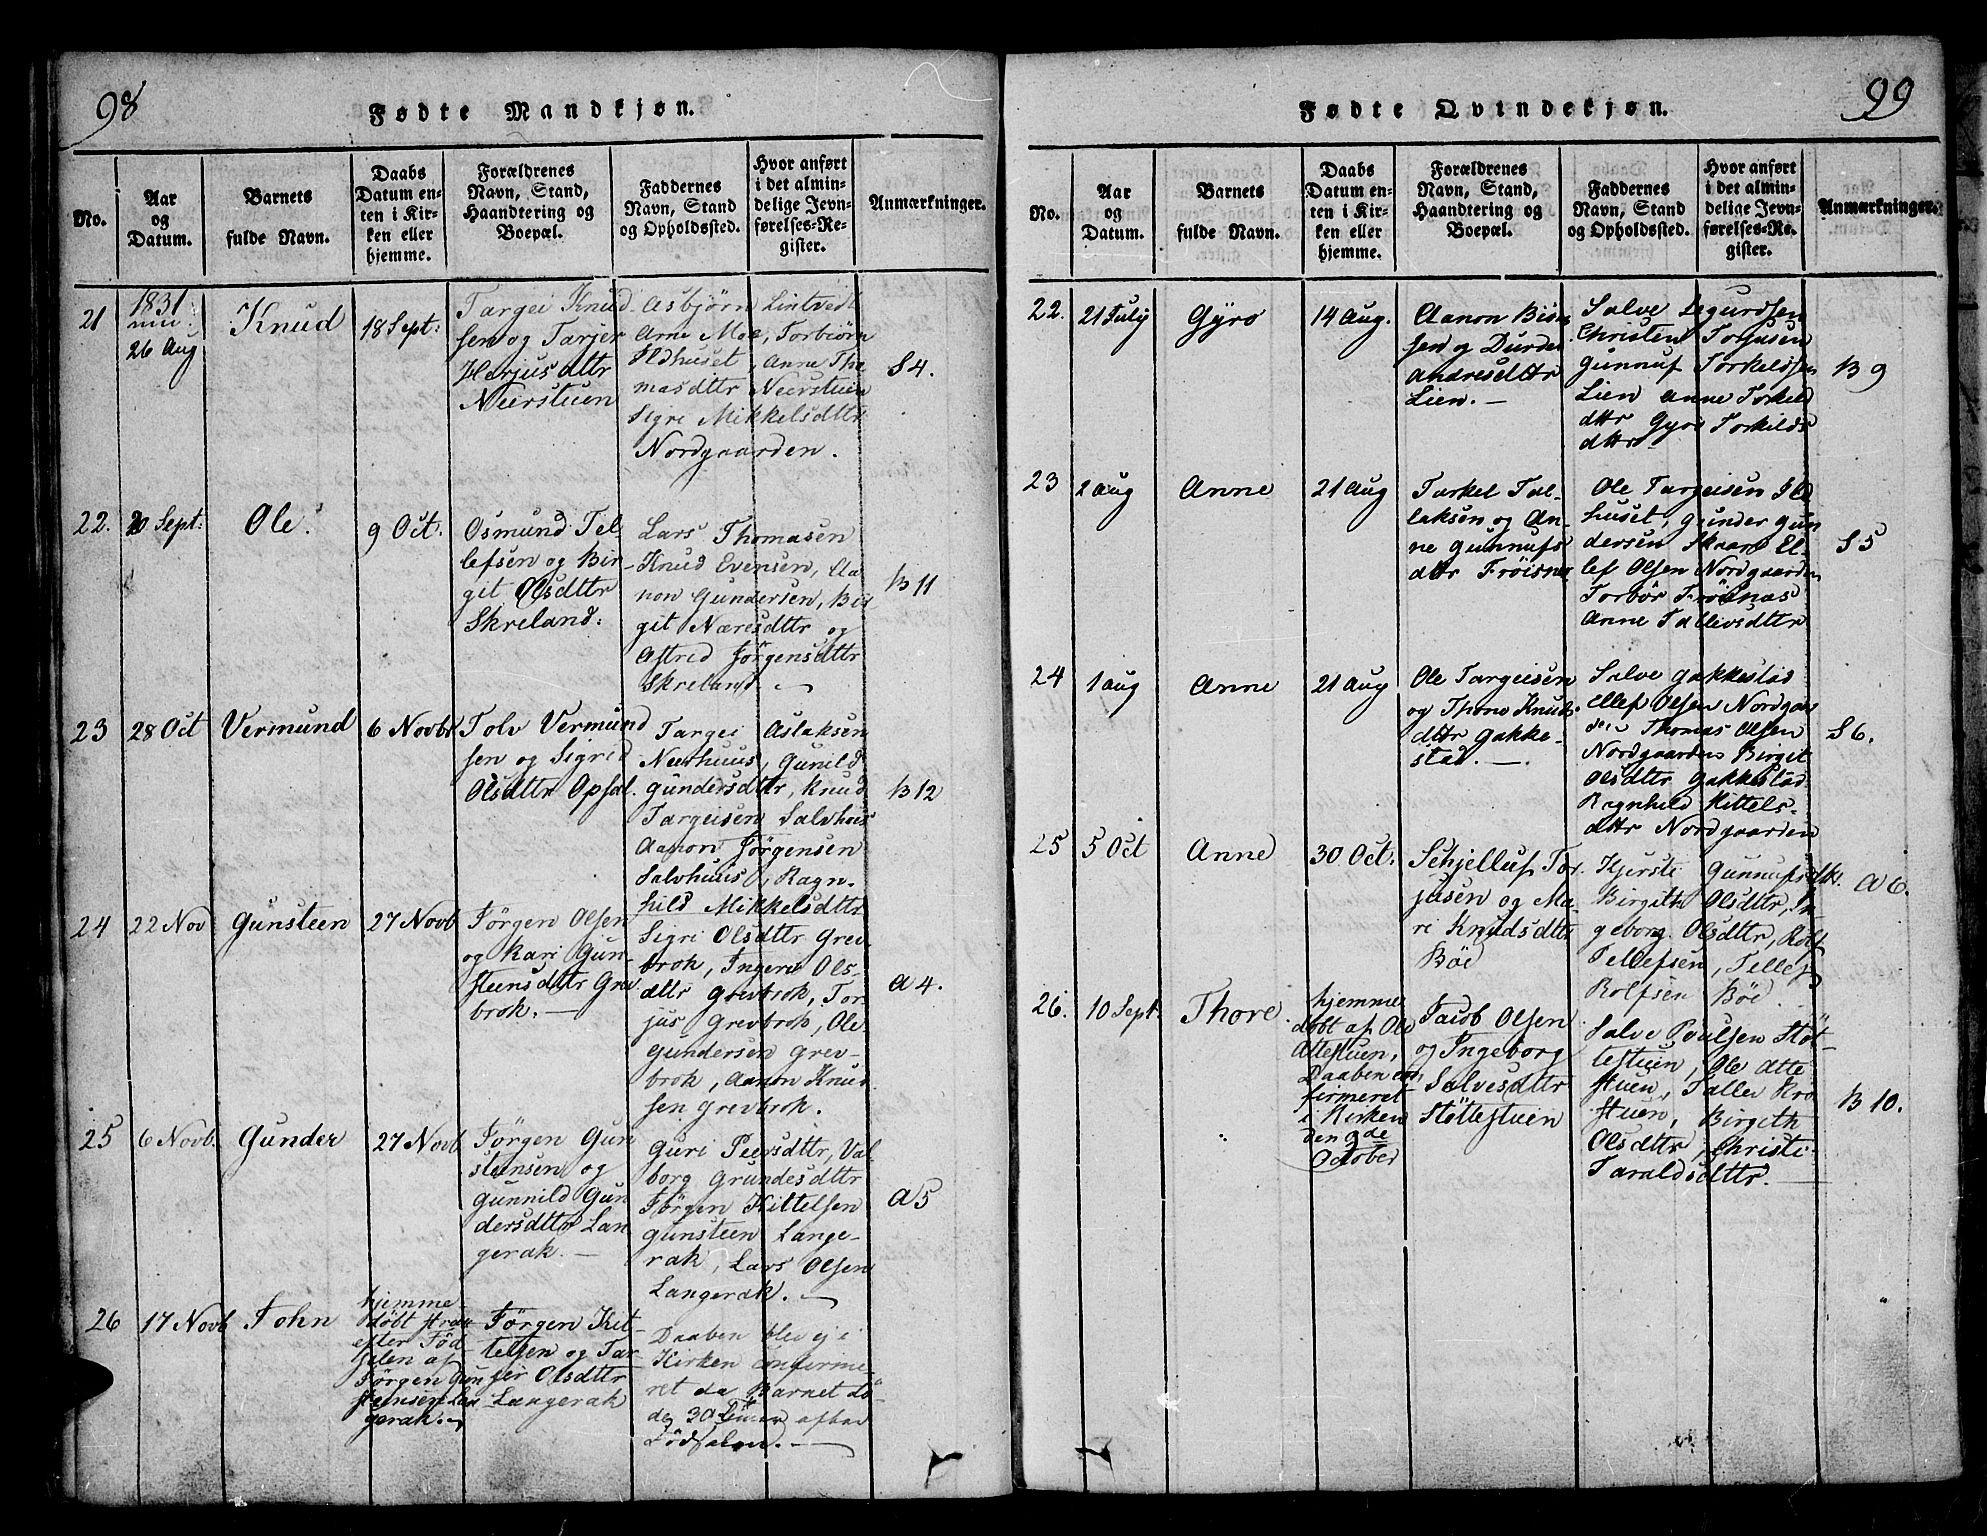 98
Fødte Mandkjøn.
No.
Aar
og
Datum.
Barnets
fulde Navn.
Daabs
Datum en-
ten i Kir-
ken eller
hjemme.
Forældrenes
Navn, Stand,
Haandtering og
Boepæl.
Faddernes
Navn, Stand
og Opholdssted.
Hvor anført
i det almin-
delige Jevn-
førelses-Re-
gister.
Anmærkninger.
21
1831
26 Aug
Knud
18 Sept:
Targei Knud
sen og Tarjer
Herjusdttr
Neerstuen
Asbjørn Lintvedt
Arne Moe, Torbiørn
Ildhuset, Anne Tho
masdttr Neerstuen
Sigri Mikkelsdttr
Nordgaarden.
S 4.
22.
20 Sept:
Ole.
9 Oct.
Osmund Tel-
lefsen og Bir-
git Olsdttr
Skreland.
Lars Thomasen
Knud Evensen, Aa-
non Gundersen, Bir
git Næresdttr og
Astrid Jörgensdttr
Skreland. —
B 11
23
28 Oct
Vermund
6 Novbr
Tolv Vermund
sen og Sigrid
Olsdttr Opsal.
Targei Aslaksen
Neerhuus, Gunild
Gundersdttr, Knud
Targeisen Salvhuus
Aanon Jörgensen
Salvhuus, Ragn-
hild Mikkelsdttr
B 12
24
22 Nov
Gunsteen
27 Novb
Jörgen Olsen
og Kari Gun-
steensdttr Grev
brok. —
Sigri Olsdttr Grev
brok, Ingeri Ols-
dttr Grevbrok, Tor
jus Grevbrok, Ole
Gundersen Grev-
brok, Aanon Knud
sen Grevbrok.
A 4.
25
6 Novb.
Gunder
27 Novb
Jörgen Gun
stensen og
Gunnild Gun
dersdttr Lan
gerak. —
Guri Peersdttr, Val
borg Grundesdttr
Jörgen Kittelsen
Gunsteen Lange-
rak, Lars Olsen
Langerak. —
A 5
26
17 Novb
John
hjemme-
döbt strax
efter Föd-
selen af
Jörgen Gun
stensen Lan
gerak. —
Jörgen Kit-
telsen og Tar
jer Olsdttr
Langerak
Daaben blev ej i
Kirken confirme
ret da Barnet dö
de 30 Timer efter
Födselen. —
99
Fødte Qvindekjøn.
No.
Aar
og
Datum.
Barnets
fulde Navn.
Daabs
Datum en-
ten i Kir-
ken eller
hjemme.
Forældrenes
Navn, Stand,
Haandtering og
Boepæl.
Faddernes
Navn, Stand
og Opholdssted.
Hvor anført
i det almin-
delige Jevn-
førelses-Re-
gister.
Anmærkninger.
22.
21 July
Gyro
14 Aug.
Aanon Biön
sen og Durdei
Andresdttr
Lien. —
Salve Sigurdsen
Christen Torjusen
Gunnuf Torkeldsen
Lien Anne Torkeld
dttr Gyro Torkilds
dttr
B 9
23
2 Aug
Anne
21 Aug
Tarkel Tal-
laksen og An-
ne Gunnufs
dttr Fröisnes
Ole Targeisen Ild
huset, Gunder Gun
dersen Skaar El-
lef Olsen Nordgaarden
Torbör Fröisnas
Anne Tallevsdttr
S 5
24
1 Aug
Anne
21 Aug
Ole Targeisen
og Thone Knuds
dttr Gakke-
stad. —
Salve Gakkestad
Ellef Olsen Nordgaar
den Thomas Olsen
Nordgaarden Birgit
Olsdttr Gakkestad
Ragnhild Kittels-
dttr Nordgaarden
S 6.
25
5 Oct
Anne
30 Oct.
Schjelluf Tor
jusen og Ma-
ri Knudsdttr
Böe
Kjersti Gunnufsdttr.
Birgith Olsdttr, In
geborg Olsdttr, Rolf
Tellefsen, Tellef
Rolfsen Böe.
A 6.
26.
10 Sept.
Thore
hjemme
döbt af Ole
Attestuen,
Daaben con
firmeret
i Kirken
den 9de
October
Jacob Olsen
og Ingeborg
Salvesdttr
Stöttestuen
Salve Poulsen Stöt-
testuen, Ole Atte
stuen, Taller Kro
stuen, Birgith
Olsdttr, Christi
Taraldsdttr. —
B 10.